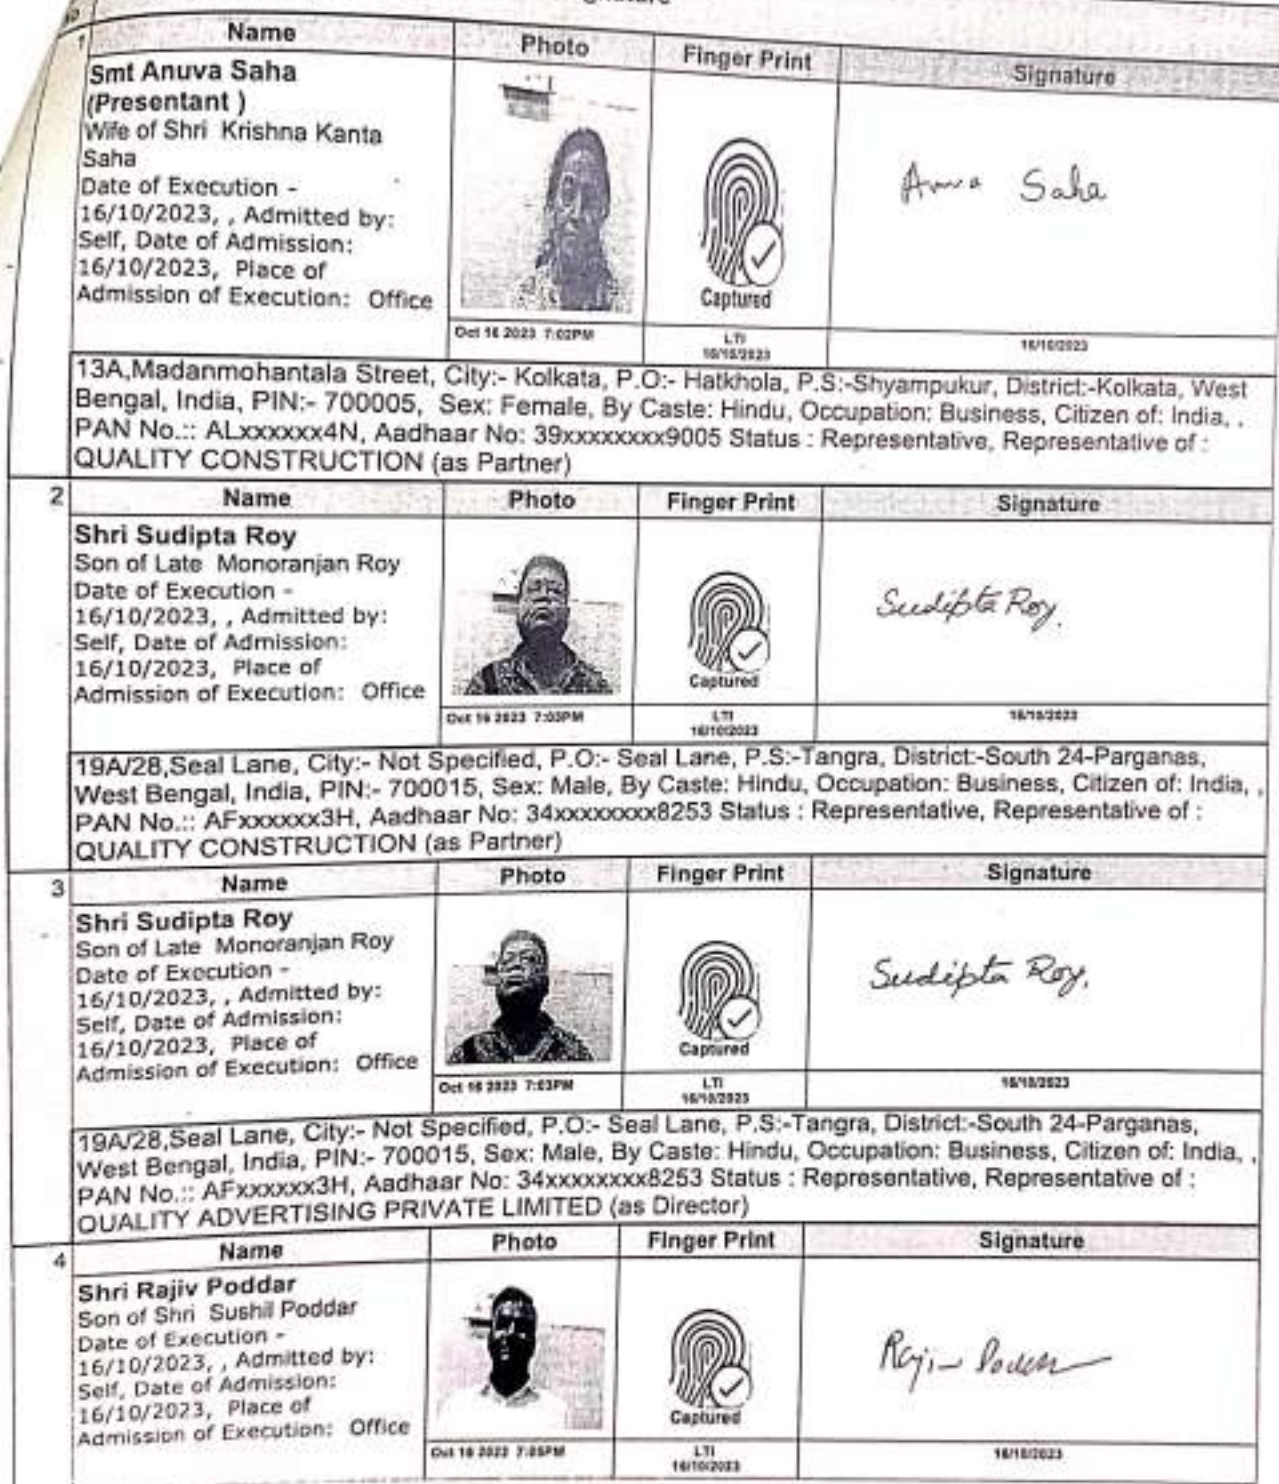 1
Name Photo Finger Print Signature
Smt Anuva Saha
(Presentant )
Wife of Shri Krishna Kanta
Saha
Date of Execution -
16/10/2023, , Admitted by:
Self, Date of Admission:
16/10/2023, Place of
Admission of Execution: Office
Captured
Saha
Oct 16 2023 7:02PM
LTI
16/10/2023
16/10/2023
13A,Madanmohantala Street, City:- Kolkata, P.O:- Hatkhola, P.S:-Shyampukur, District:-Kolkata, West
Bengal, India, PIN:- 700005, Sex: Female, By Caste: Hindu, Occupation: Business, Citizen of: India, ,
PAN No.:: ALxxxxxx4N, Aadhaar No: 39xxxxxxxx9005 Status : Representative, Representative of :
QUALITY CONSTRUCTION (as Partner)
2
Name Photo Finger Print Signature
Shri Sudipta Roy
Son of Late Monoranjan Roy
Date of Execution -
16/10/2023, , Admitted by:
Self, Date of Admission:
16/10/2023, Place of
Admission of Execution: Office
Captured
Sudipta Roy.
Oct 16 2023 7:03PM
LTI
16/10/2023
16/10/2023
19A/28,Seal Lane, City:- Not Specified, P.O:- Seal Lane, P.S:-Tangra, District:-South 24-Parganas,
West Bengal, India, PIN:- 700015, Sex: Male, By Caste: Hindu, Occupation: Business, Citizen of: India, ,
PAN No.:: AFxxxxxx3H, Aadhaar No: 34xxxxxxxx8253 Status : Representative, Representative of :
QUALITY CONSTRUCTION (as Partner)
3
Name Photo Finger Print Signature
Shri Sudipta Roy
Son of Late Monoranjan Roy
Date of Execution -
16/10/2023, , Admitted by:
Self, Date of Admission:
16/10/2023, Place of
Admission of Execution: Office
Captured
Sudipta Roy.
Oct 16 2023 7:03PM
LTI
16/10/2023
16/10/2023
19A/28,Seal Lane, City:- Not Specified, P.O:- Seal Lane, P.S:-Tangra, District:-South 24-Parganas,
West Bengal, India, PIN:- 700015, Sex: Male, By Caste: Hindu, Occupation: Business, Citizen of: India, ,
PAN No.:: AFxxxxxx3H, Aadhaar No: 34xxxxxxxx8253 Status : Representative, Representative of :
QUALITY ADVERTISING PRIVATE LIMITED (as Director)
4
Name Photo Finger Print Signature
Shri Rajiv Poddar
Son of Shri Sushil Poddar
Date of Execution -
16/10/2023, , Admitted by:
Self, Date of Admission:
16/10/2023, Place of
Admission of Execution: Office
Captured
Oct 16 2023 7:05PM
LTI
16/10/2023
16/10/2023